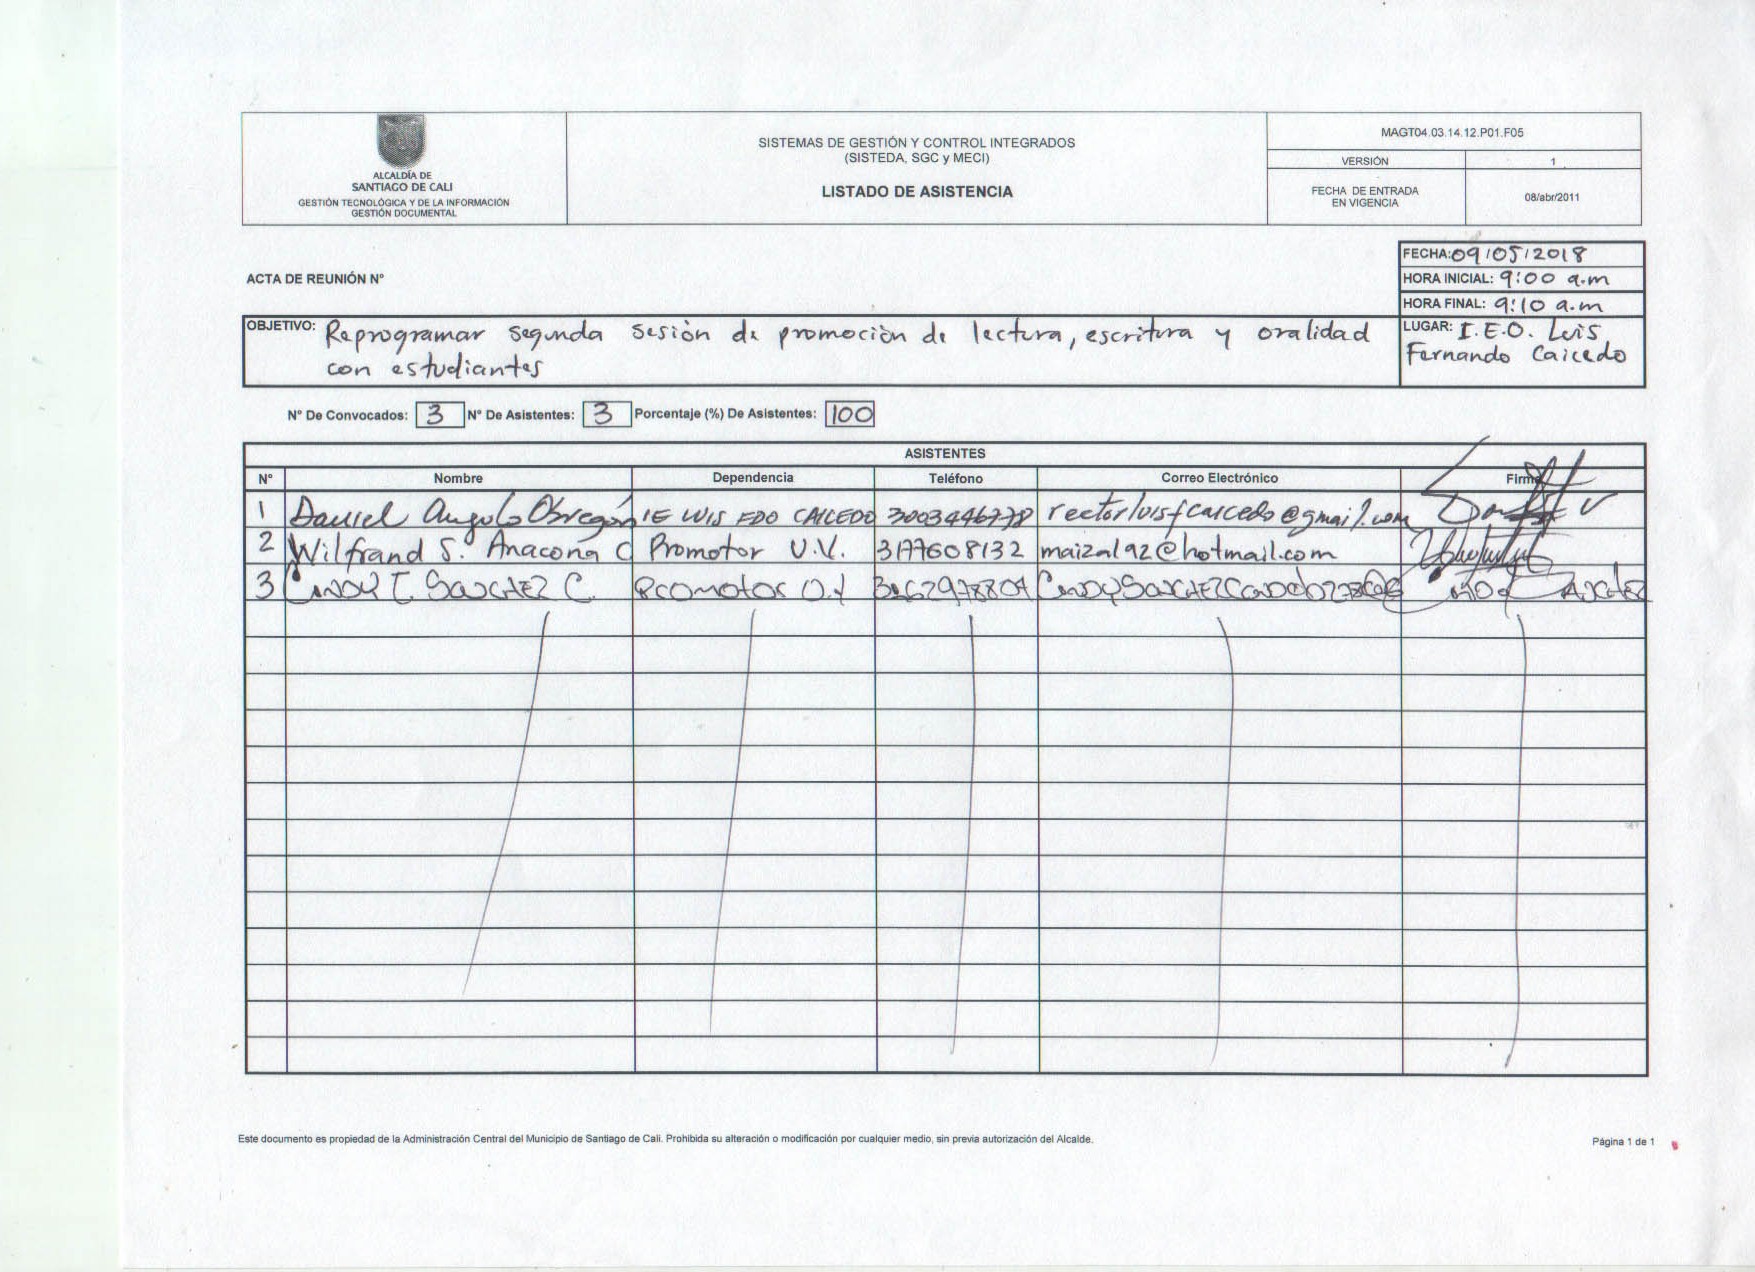 ALCALDÍA DE
SANTIAGO DE CALI
GESTIÓN TECNOLÓGICA Y DE LA INFORMACIÓN
GESTIÓN DOCUMENTAL
SISTEMAS DE GESTIÓN Y CONTROL INTEGRADOS
(SISTEDA, SGC y MECI)
LISTADO DE ASISTENCIA
MAGT04.03.14.12.P01.F05
VERSIÓN 1
FECHA DE ENTRADA
EN VIGENCIA
08/abr/2011
ACTA DE REUNIÓN N°
FECHA: 09/05/2018
HORA INICIAL: 9:00 a.m
HORA FINAL: 9:10 a.m
OBJETIVO: Reprogramar segunda sesión de promoción de lectura, escritura y oralidad
con estudiantes
LUGAR: I.E.O. Luis
Fernando Caicedo
N° De Convocados: 3 N° De Asistentes: 3 Porcentaje (%) De Asistentes: 100
ASISTENTES
N° Nombre Dependencia Teléfono Correo Electrónico Firma
1 Daniel Angulo Obregón IE LUIS FDO CAICEDO 3003446778 rectorluisfcaicedo@gmail.com
2 Wilfrand S. Anacona C Promotor U.V. 3177608132 maizal92@hotmail.com
3 Cindy T. Sanchez C. Promotor
Este documento es propiedad de la Administración Central del Municipio de Santiago de Cali. Prohibida su alteración o modificación por cualquier medio, sin previa autorización del Alcalde.
Página 1 de 1